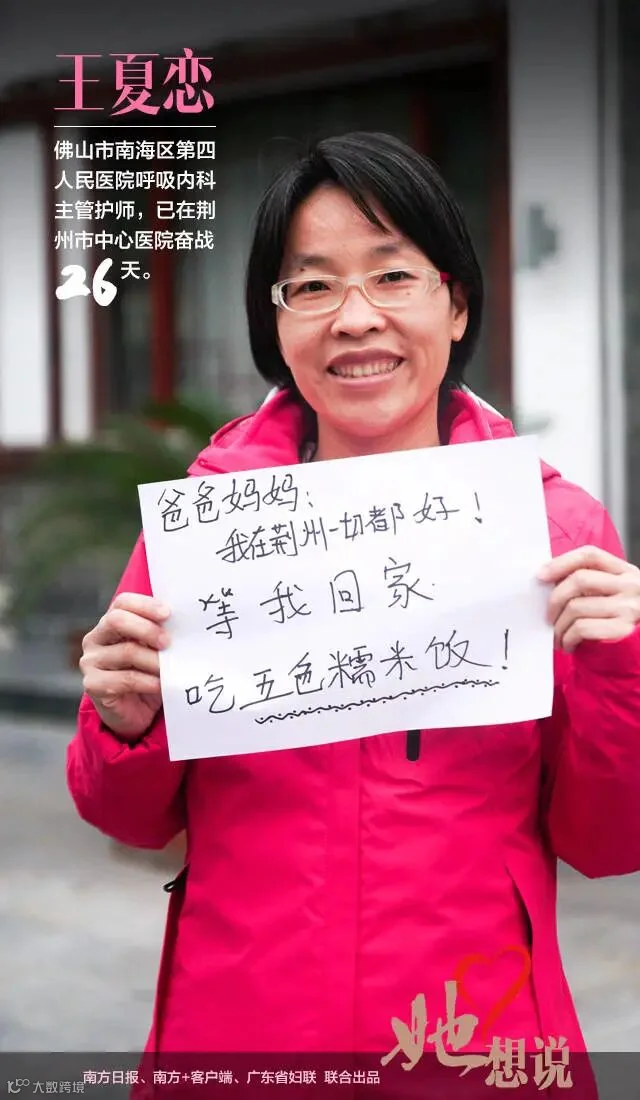 王夏恋
佛山市南海区第四
人民医院呼吸内科
主管护师，已在荆
州市中心医院奋战
26天。
爸爸妈妈：
我在荆州一切都好！
等我回家
吃五色糯米饭！
她想说
南方日报、南方+客户端、广东省妇联 联合出品
大数跨境